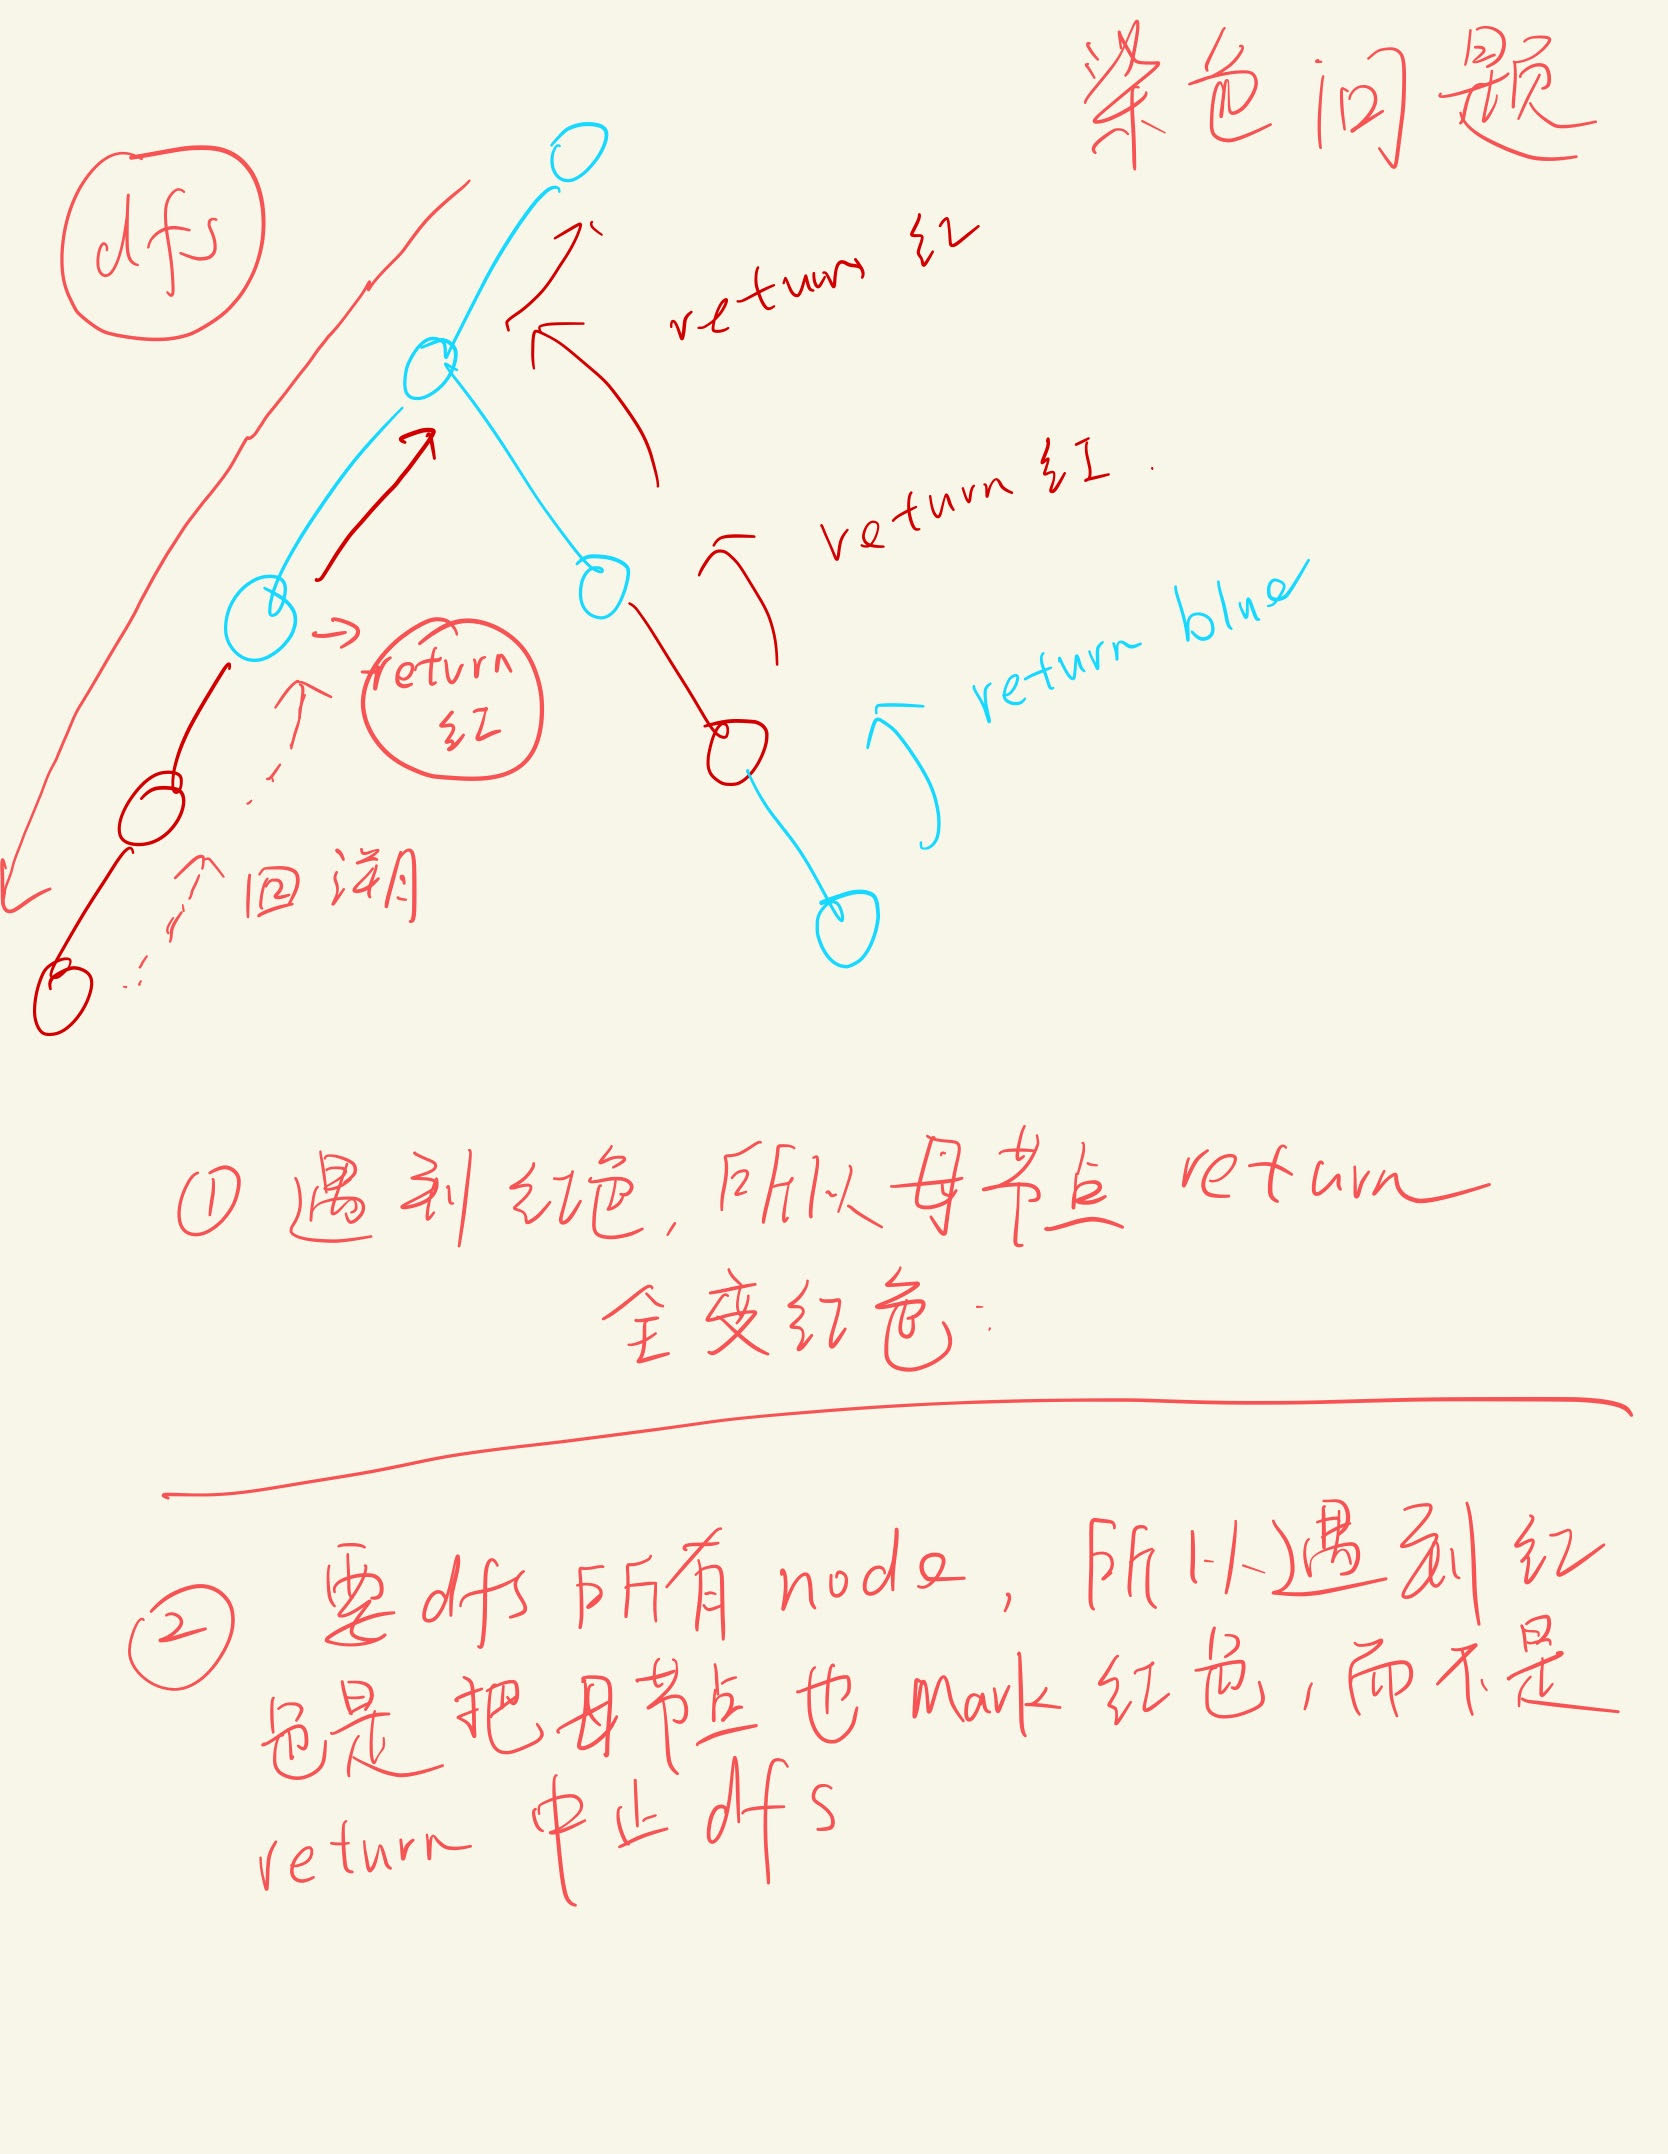 染色问题
dfs
return 红
return 红
return blue
return
红
回溯
① 遇到红色, 所以母节点 return
全变红色
② 要dfs所有node, 所以遇到红
色是把母节点也mark红色, 而不是
return 中止dfs